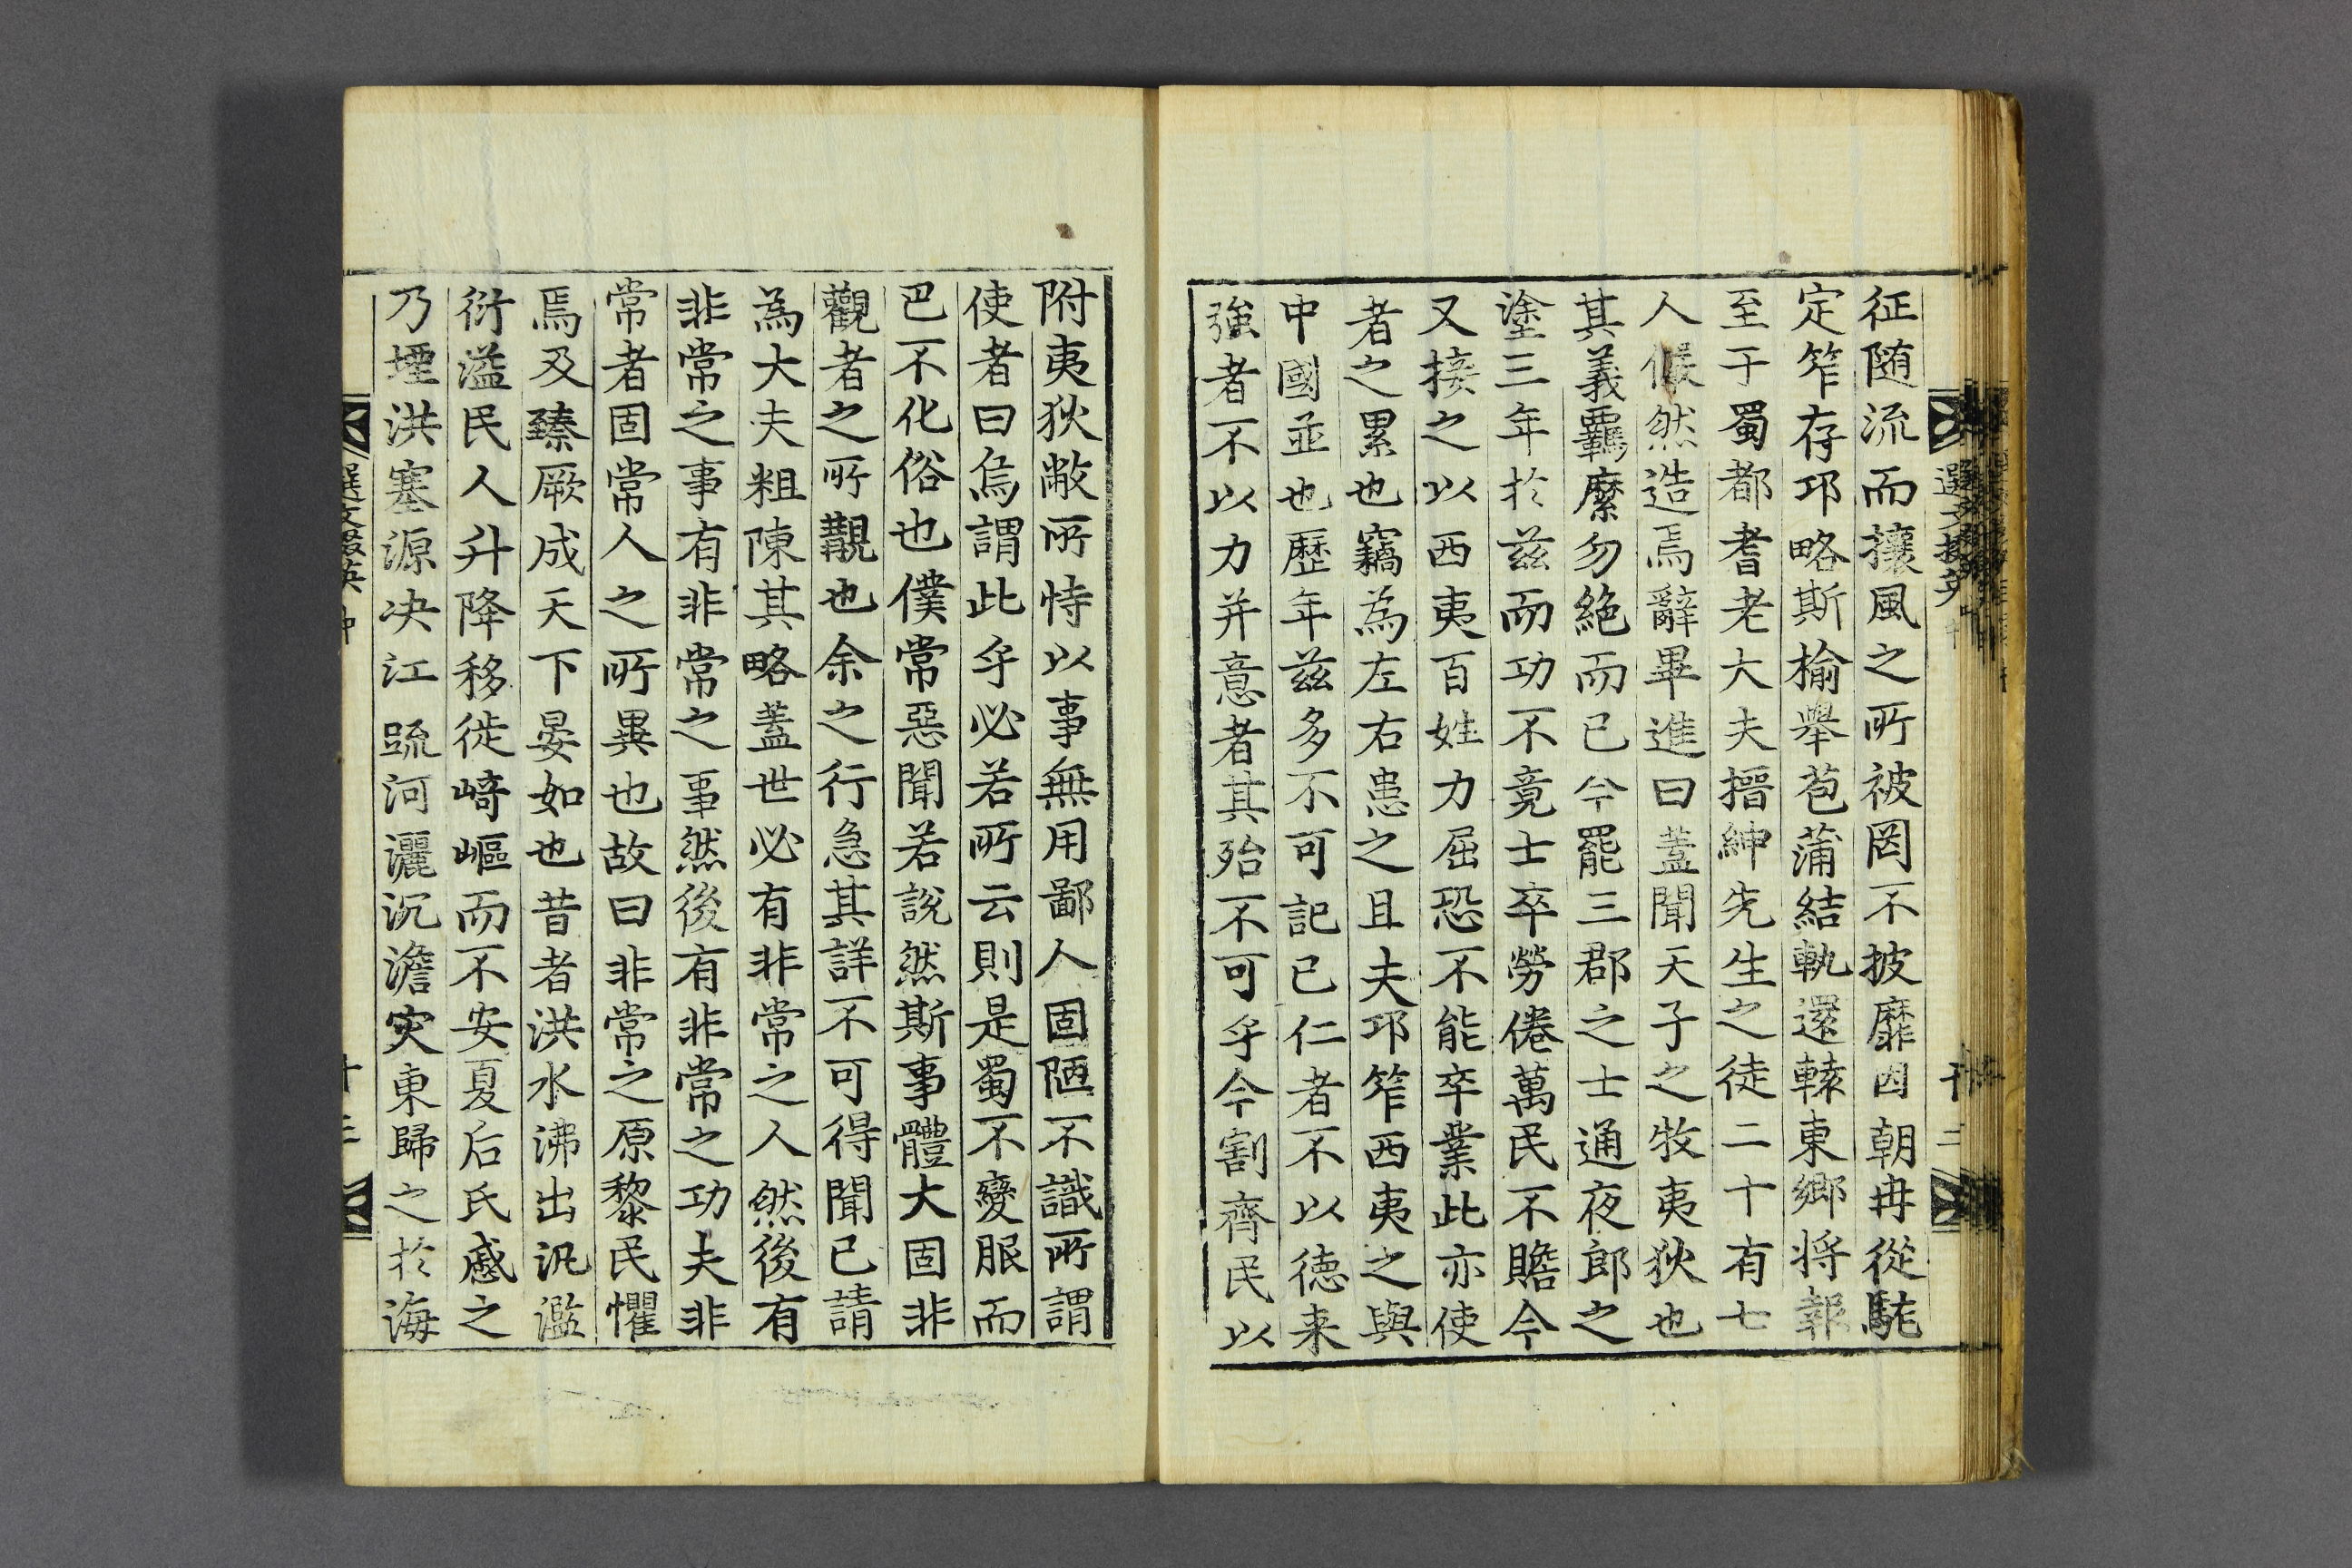 征随流而攘風之所被罔不披靡因朝冉從駹
定筰存邛略斯榆舉苞蒲結軌還轅東鄉将報
至于蜀都耆老大夫搢紳先生之徒二十有七
人儼然造焉辭畢進曰蓋聞天子之牧夷狄也
其義羈縻勿絶而已今罷三郡之士通夜郎之
塗三年於兹而功不竟士卒勞倦萬民不贍今
又接之以西夷百姓力屈恐不能卒業此亦使
者之累也竊為左右患之且夫邛筰西夷之與
中國並也歷年兹多不可記已仁者不以德来
強者不以力并意者其殆不可乎今割齊民以
附夷狄敝所恃以事無用鄙人固陋不識所謂
使者曰烏謂此乎必若所云則是蜀不變服而
巴不化俗也僕常惡聞若說然斯事體大固非
觀者之所覯也余之行急其詳不可得聞已請
為大夫粗陳其略蓋世必有非常之人然後有
非常之事有非常之事然後有非常之功夫非
常者固常人之所異也故曰非常之原黎民懼
焉及臻厥成天下晏如也昔者洪水沸出汎濫
衍溢民人升降移徙崎嶇而不安夏后氏慼之
乃堙洪塞源决江疏河灑沉澹灾東歸之於海
選文掇英 中
十二